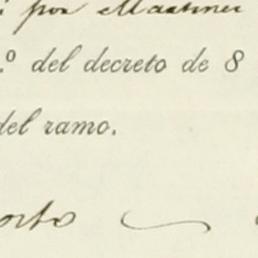 por Martinez
.º del decreto de 8
del ramo.
orto